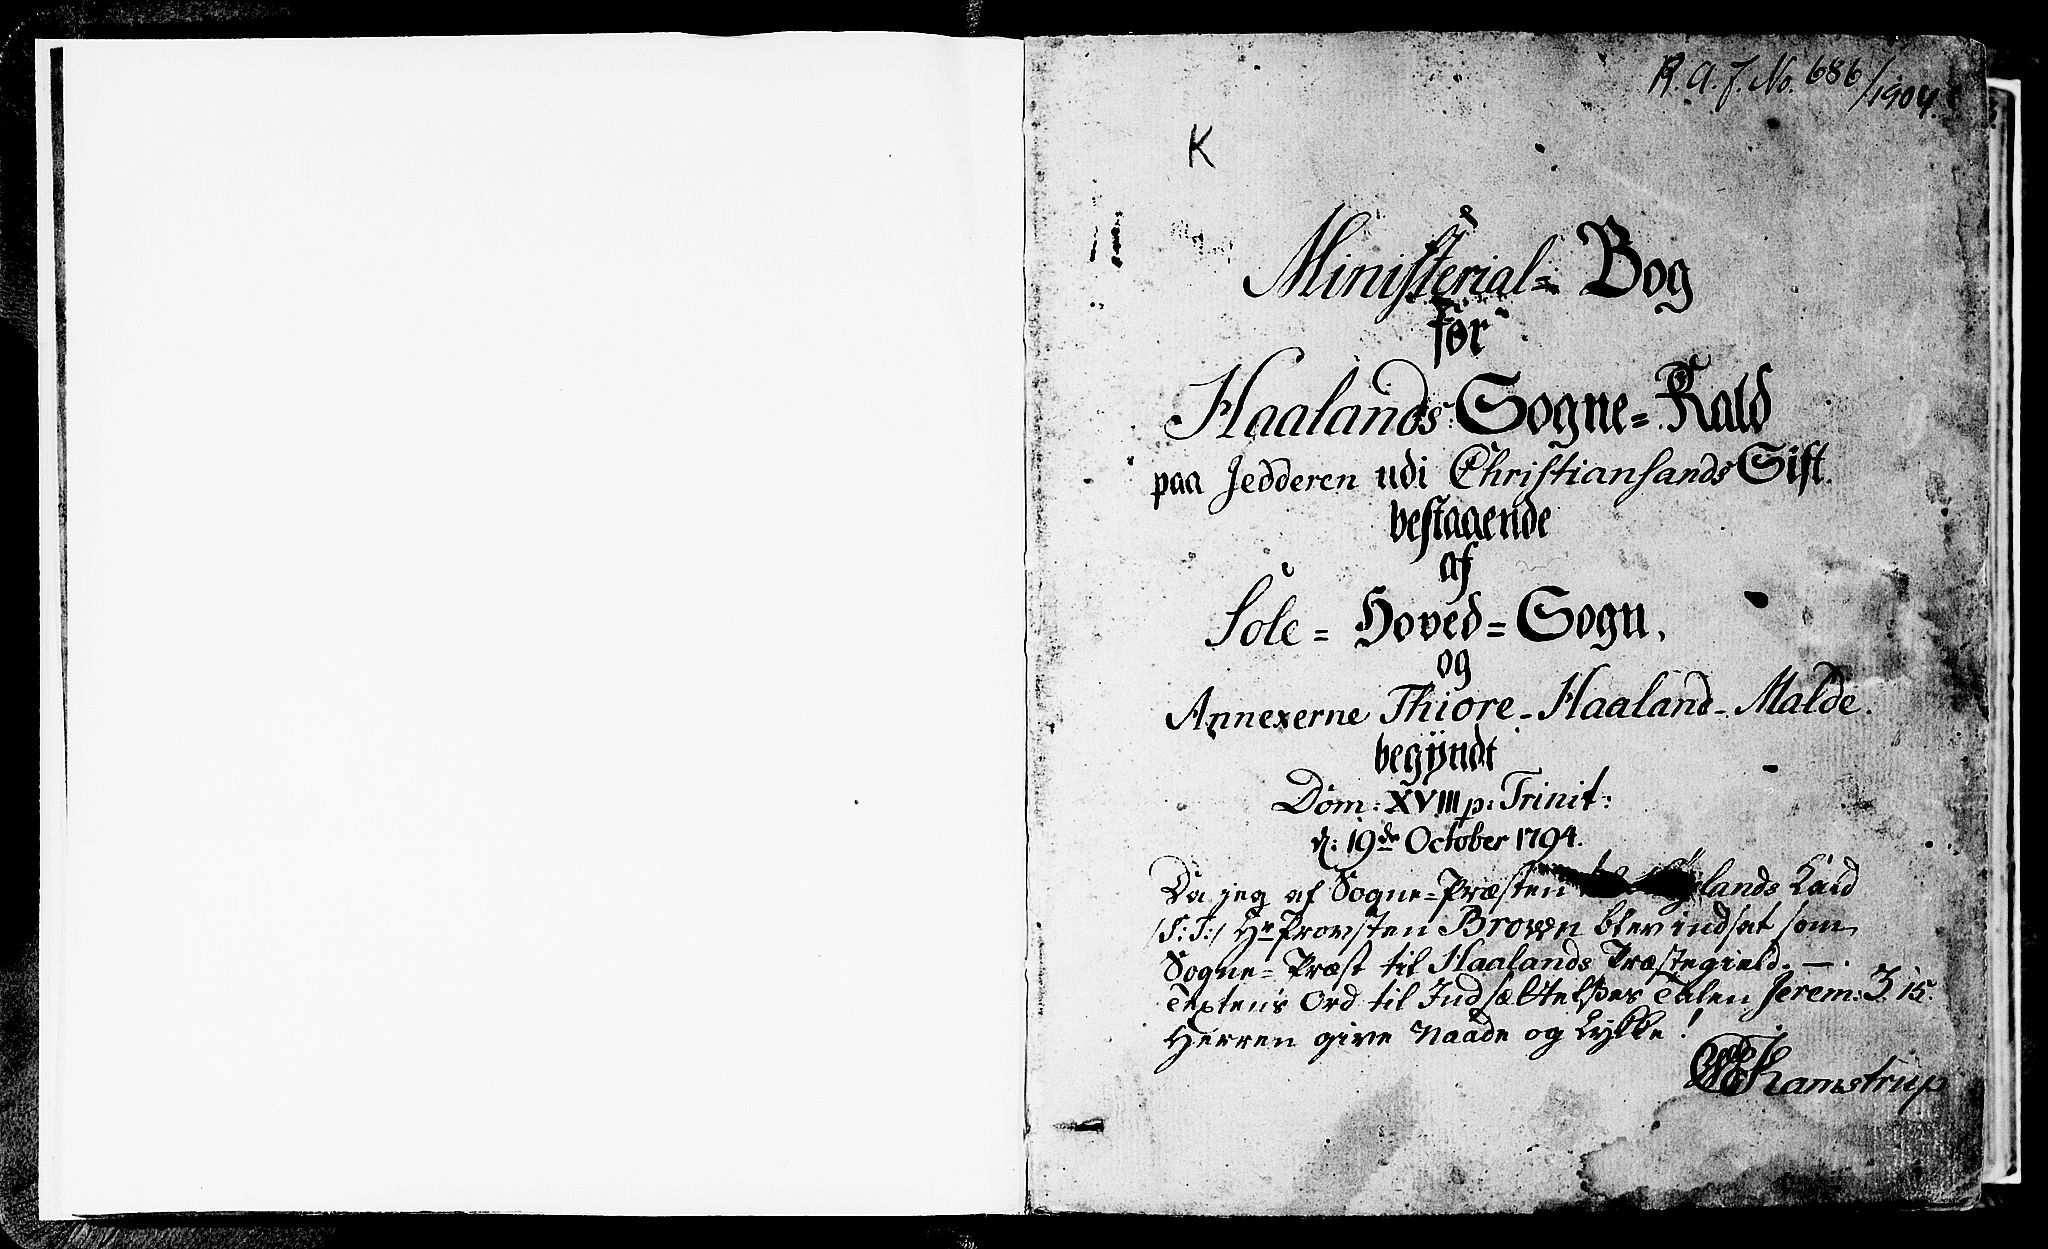 R. A. J. No. 686/1904.
K
Ministerial= Bog
for
Haalands Sogne=Kald
paa Jedderen udi Christiansands Sift.
bestaaende
af
Sole= Hoved=Sogn,
og
Annexerne Thiore_ Haaland_ Malde.
begÿndt
Dom: XVIII p: Trinit:
d: 19de October 1794.
Da jeg af Sogne=Præsten lands Kald
/S: T:/ Hr Provsten Brown blev indsat som
Sogne=Præst til Haalands Præstegield. —.
Textens Ord til Indsættelses Talen Jerem: 3. 15.
Herren give Naade og Lykke!
Kamstrup